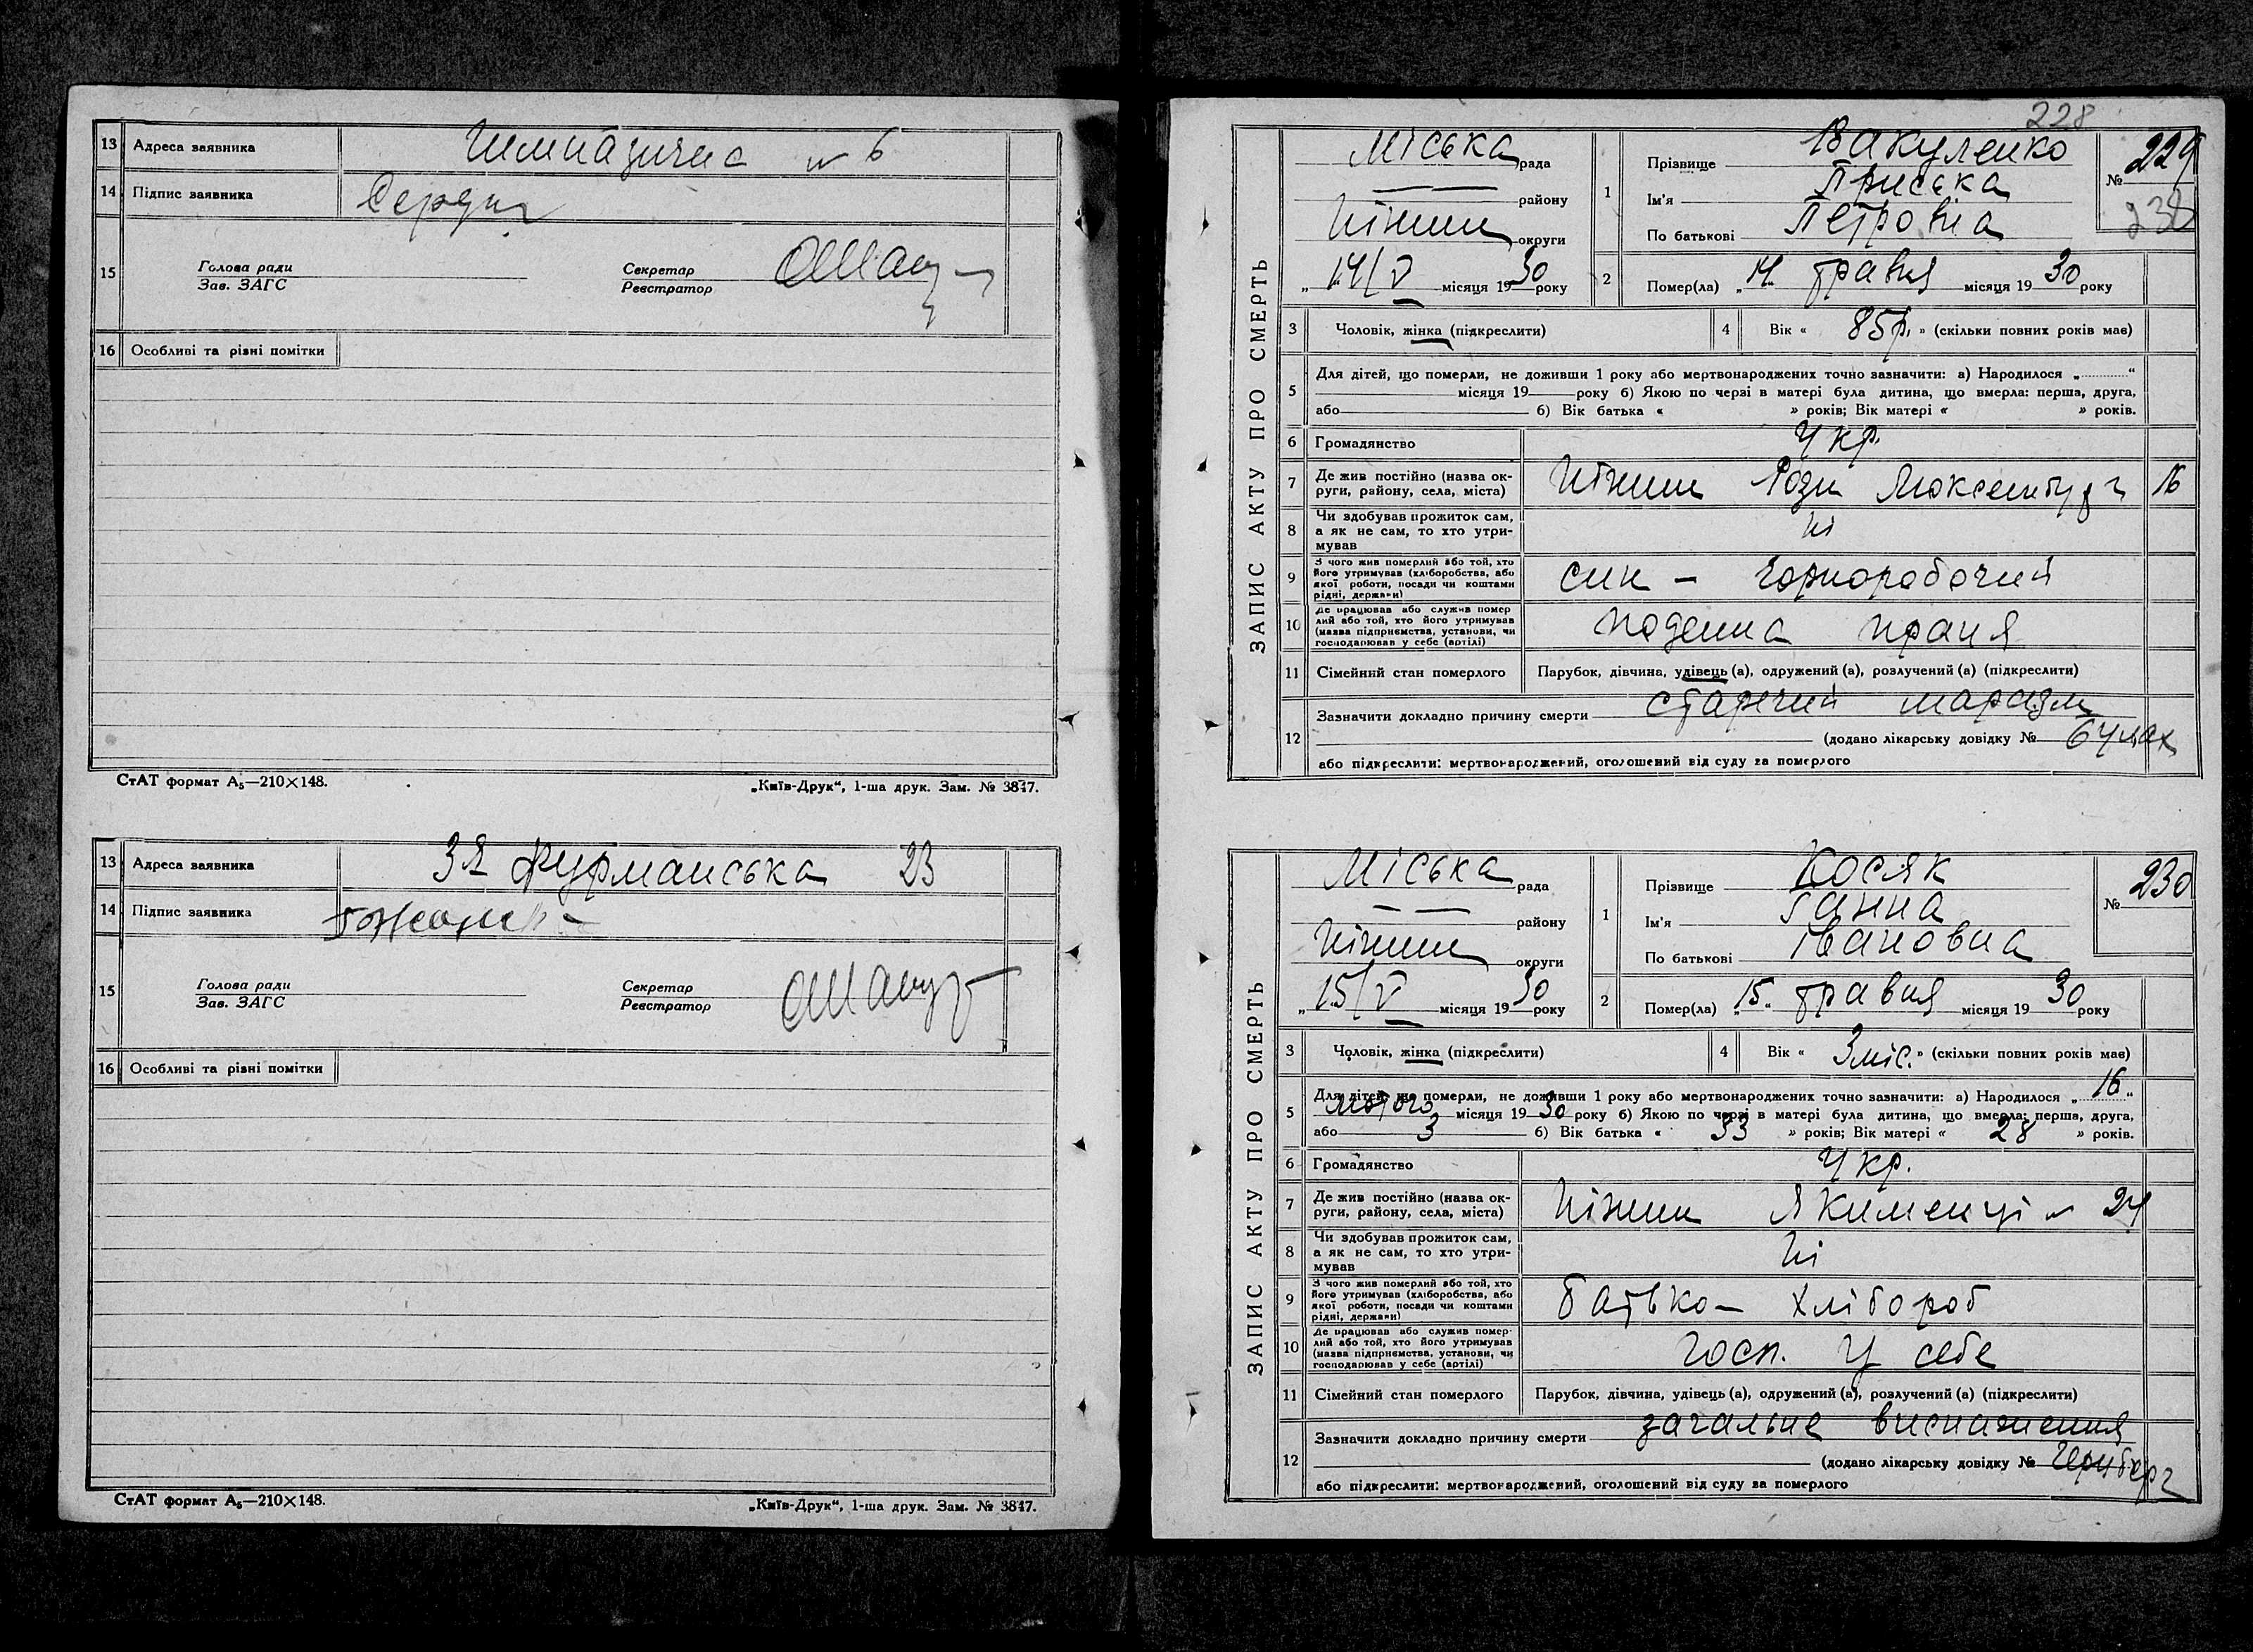 13 Адреса заявника Гимназична № 6
14 Підпис заявника
15 Голова ради
Зав. ЗАГС
Секретар
Реєстратор
16 Особливі та різні помітки
СтАТ формат А₅—210×148.
„Київ-Друк“, 1-ша друк. Зам. № 3847.
13 Адреса заявника 3я Фурманська 23
14 Підпис заявника
15 Голова ради
Зав. ЗАГС
Секретар
Реєстратор
16 Особливі та різні помітки
СтАТ формат А₅—210×148.
„Київ-Друк“, 1-ша друк. Зам. № 3847.
228
ЗАПИС АКТУ ПРО СМЕРТЬ
Міська рада
— — району
Ніжин округи
„14/V місяця 1930 року
1 Прізвище Вакуленко
Ім'яПриська
По батькові Петровна
№ 229
238
2 Помер(ла) „14“ травня місяця 1930 року
3 Чоловік, жінка (підкреслити)
4 Вік « 85р. » (скільки повних років має)
5 Для дітей, що померли, не доживши 1 року або мертвонароджених точно зазначити: а) Народилося „ “
місяця 19 року б) Якою по черзі в матері була дитина, що вмерла: перша, друга,
або б) Вік батька « » років; Вік матері « » років.
6 Громадянство Укр.
7 Де жив постійно (назва округи, району, села, міста) Ніжин Рози Люксембург 16
8 Чи здобував прожиток сам,
а як не сам, то хто утримував ні
9 З чого жив померлий або той, хто
його утримував (хліборобства, або
якої роботи, посади чи коштами
рідні, держави) син – чорноробочий
10 Де працював або служив померлий або той, хто його утримував
(назва підприємства, установи, чи
господарював у себе (артілі) поденна праця
11 Сімейний стан померлого Парубок, дівчина, удівець (а), одружений (а), розлучений (а) (підкреслити)
12 Зазначити докладно причину смерти старечий маразм
(додано лікарську довідку №
або підкреслити: мертвонароджений, оголошений від суду за померлого
ЗАПИС АКТУ ПРО СМЕРТЬ
Міська рада
— — району
Ніжин округи
„15/V місяця 1930 року
1 Прізвище Косяк
Ім'я Ганна
По батькові Івановна
№ 230
2 Помер(ла) „15“ травня місяця 1930 року
3 Чоловік, жінка (підкреслити)
4 Вік « 3 міс. » (скільки повних років має)
5 Для дітей, що померли, не доживши 1 року або мертвонароджених точно зазначити: а) Народилося „16“
лютого місяця 1930 року б) Якою по черзі в матері була дитина, що вмерла: перша, друга,
або 3 б) Вік батька « 33 » років; Вік матері « 28 » років.
6 Громадянство Укр.
7 Де жив постійно (назва округи, району, села, міста) Ніжин Якименці № 24
8 Чи здобував прожиток сам,
а як не сам, то хто утримував Ні
9 З чого жив померлий або той, хто
його утримував (хліборобства, або
якої роботи, посади чи коштами
рідні, держави) батько – хлібороб
10 Де працював або служив померлий або той, хто його утримував
(назва підприємства, установи, чи
господарював у себе (артілі) госп. у себе
11 Сімейний стан померлого Парубок, дівчина, удівець (а), одружений (а), розлучений (а) (підкреслити)
12 Зазначити докладно причину смерти загальне виснаження
(додано лікарську довідку №
або підкреслити: мертвонароджений, оголошений від суду за померлого